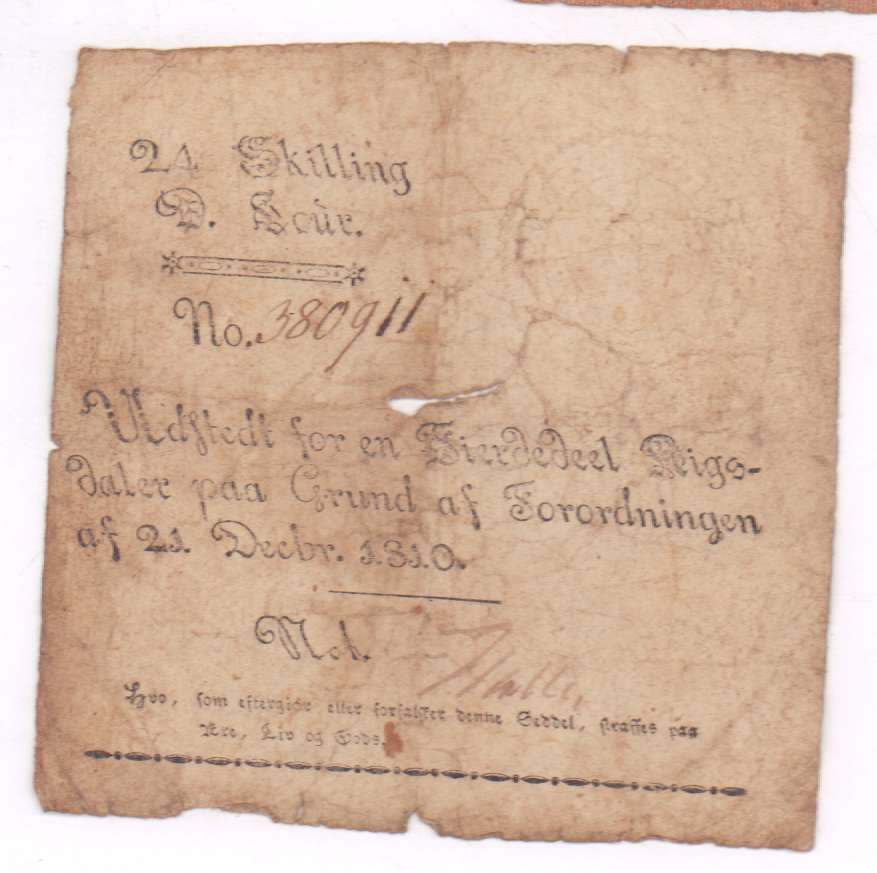 24 Skilling
D. Cour.
No. 380911
Udstedt for en Fierdedeel Rigs-
daler paa Grund af Forordningen
af 21 Decbr. 1810.
Not.
Hvo, som eftergiør eller forfalsker denne Seddel, straffes paa
Ære, Liv og Gods.